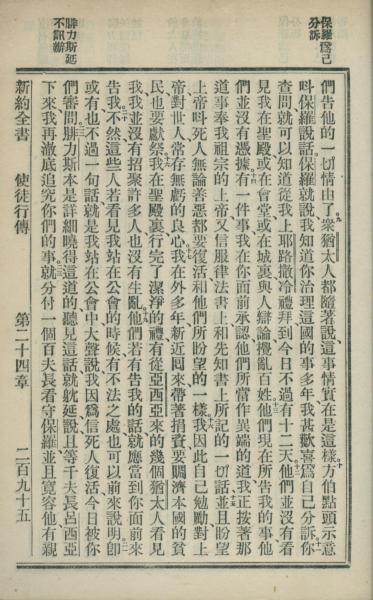 保羅爲己
分訴
們告他的一切情由了衆猶太人都隨著說這事情實在是這樣方伯點頭示意
呌保羅說話保羅就說我知道你治理這國的事多年我甚歡喜爲自己分訴你
查問就可以知道從我上耶路撒冷禮拜到今日不過有十二天他們並沒有看
見我在聖殿或在會堂或在城裏與人辯論攪亂百姓他們現在所告我的事他
們並沒有憑據有一件事我在你面前承認他們所當作異端的道我正按著那
道事奉我祖宗的上帝又信服律法書上和先知書上所記的一切話並且盼望
上帝呌死人無論善惡都要復活和他們所盼望的一樣我因此自己勉勵對上
帝對世人常存無虧的良心我在外多年新近囘來帶著捐資要賙濟本國的貧
民也要獻祭我在聖殿裏行完了潔淨的禮有從亞西亞來的幾個猶太人看見
我我並沒有招聚許多人也沒有生亂他們若有告我的話就應當到你面前來
告我不然這些人若看見我站在公會的時候有不法之處也可以前來說明卽
或有也不過一句話就是我站在公會中大聲說我因爲信死人復活今日被你
們審問腓力斯本是詳細曉得這道的聽見這話就躭延說且等千夫長呂西亞
下來我再澈底追究你們的事就分付一個百夫長看守保羅並且寬容他有親
腓力斯延
不訊辦
新約全書 使徒行傳 第二十四章 二百九十五